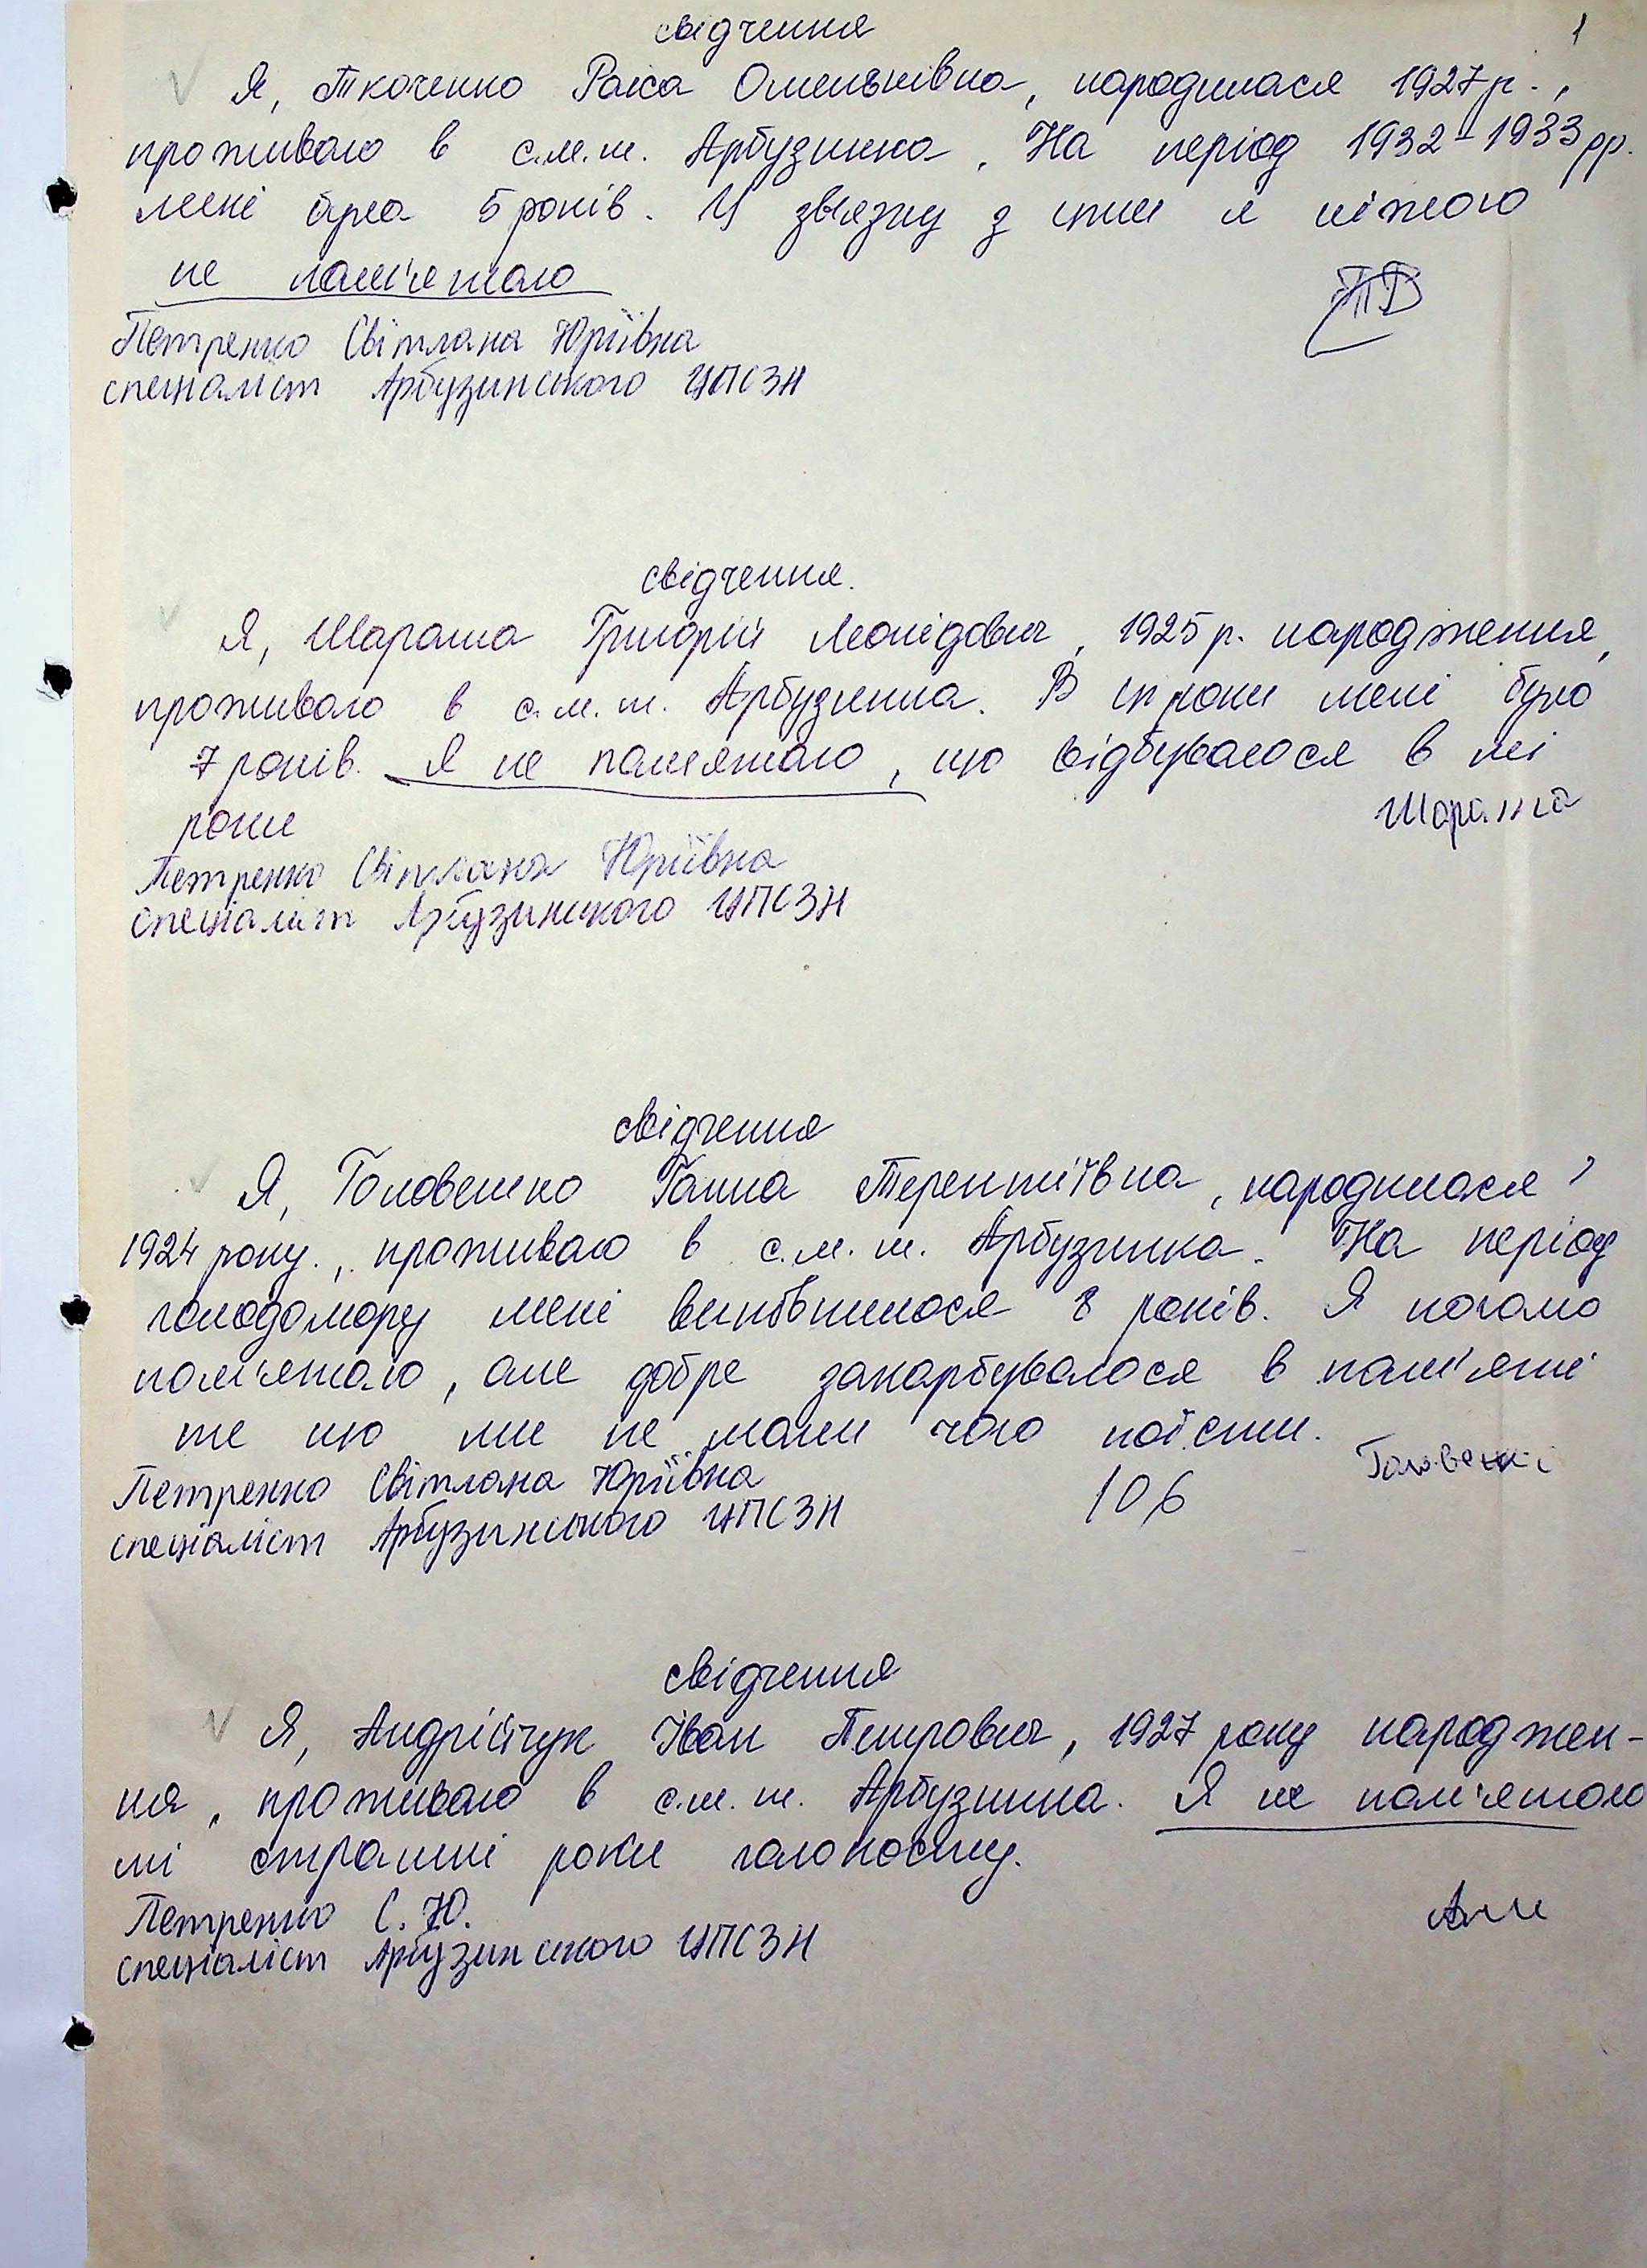 свідчення
1
Я, Ткаченко Раїса Омельківна, народилася 1927 р.,
проживаю в с.м.т. Арбузинка. На період 1932-1933 рр.
мені було 5 років. У зв'язку з цим я нічого
не пам'ятаю
Петренко Світлана Юріївна
спеціаліст Арбузинського ЦПСЗН
свідчення.
Я, Шарата Григорій Леонідович, 1925 р. народження,
проживаю в с.м.т. Арбузинка. В ці роки мені було
7 років. Я не пам'ятаю, що відбувалося в ті
роки
Шарата
Петренко Світлана Юріївна
спеціаліст Арбузинського ЦПСЗН
свідчення
Я, Головешко Ганна Терентіївна, народилася
1924 року., проживаю в с.м.т. Арбузинка. На період
голодомору мені виповнилося 8 років. Я погано
пам'ятаю, але добре закарбувалося в пам'яті
те що ми не мали чого поїсти.
Петренко Світлана Юріївна
106
спеціаліст Арбузинського ЦПСЗН
свідчення
Я, Андрійчук Іван Петрович, 1927 року народжен-
ня, проживаю в с.м.т. Арбузинка. Я не пам'ятаю
ті страшні роки голокосту.
Петренко С. Ю.
спеціаліст Арбузинського ЦПСЗН